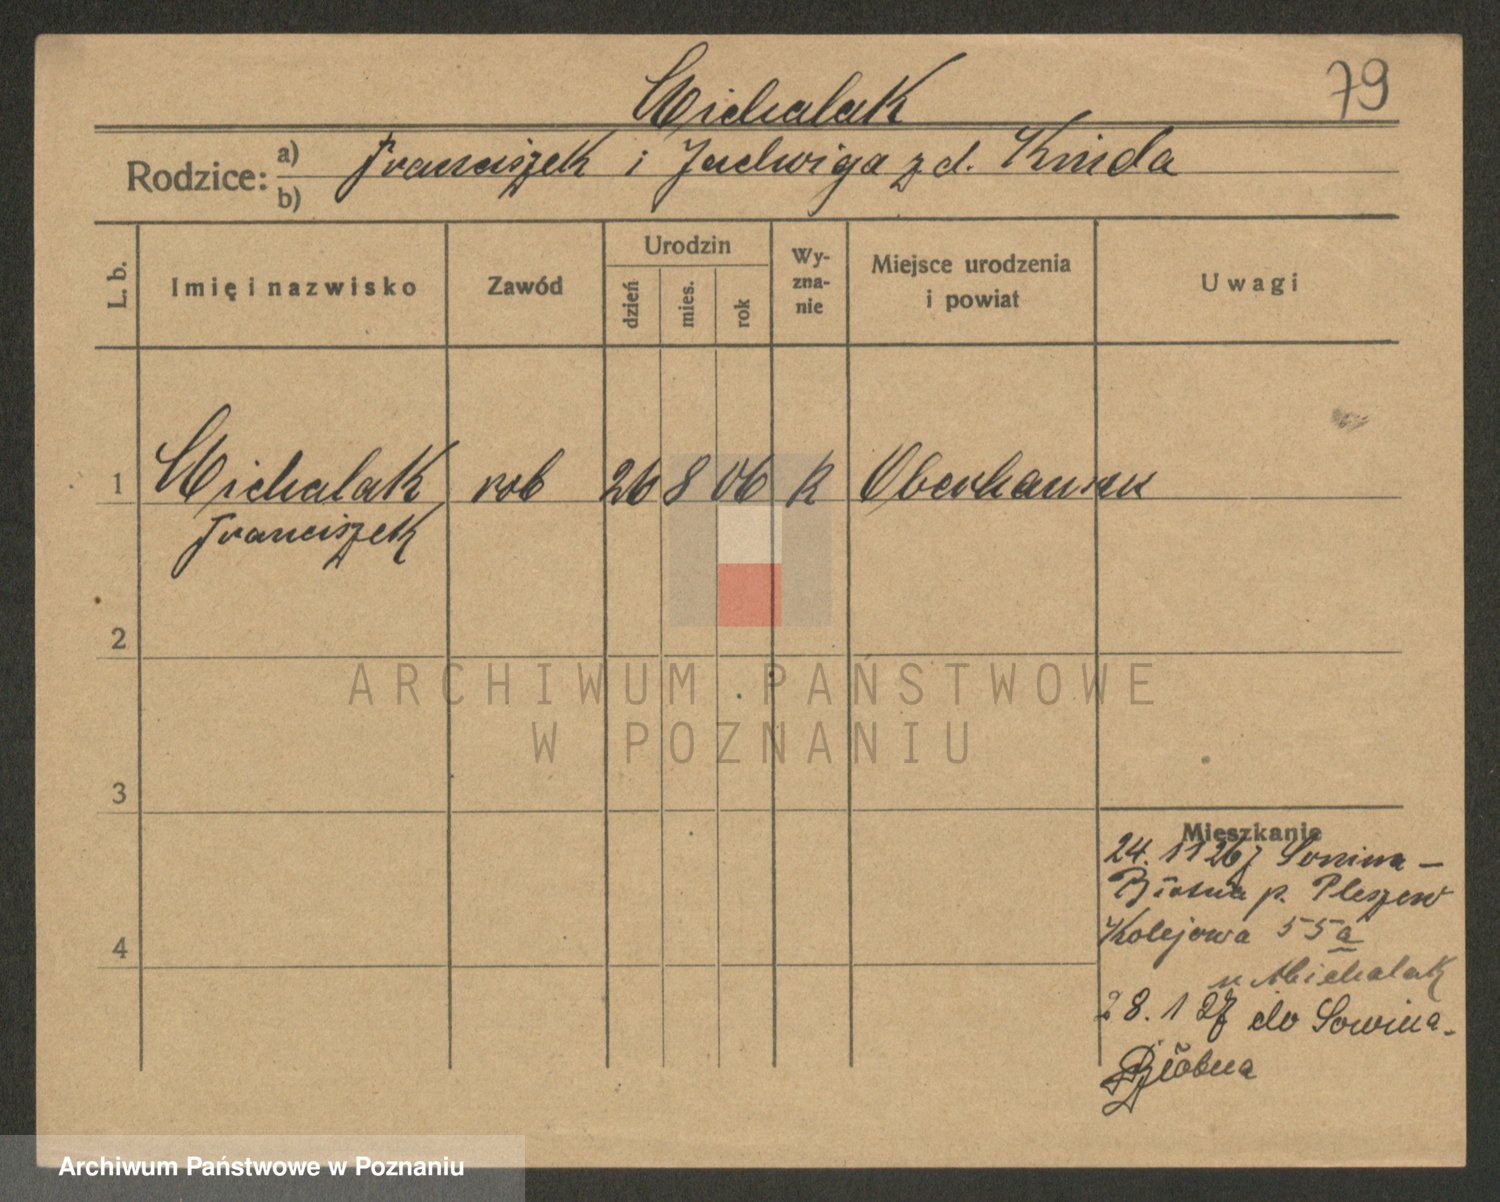 79
Michalak
Rodzice: a) Franciszek i Jadwiga z d. Kinda
b)
L. b. Imię i nazwisko Zawód Urodzin dzień mies. rok Wy-zna-nie Miejsce urodzenia i powiat Uwagi
1 Michalak rob 26 8 06 k Oberhausen
Franciszek
2
3
4
Mieszkanie
24. 11 26 z Sowina –
p. Pleszew
Kolejowa 55a
u Michalak
28. 1 27 do Sowina-
Błotna
ARCHIWUM PAŃSTWOWE
W POZNANIU
Archiwum Państwowe w Poznaniu